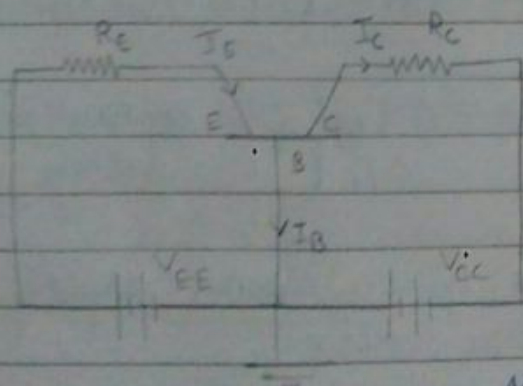 R_E I_E I_C R_C
E C
B
I_B
V_EE V_CC